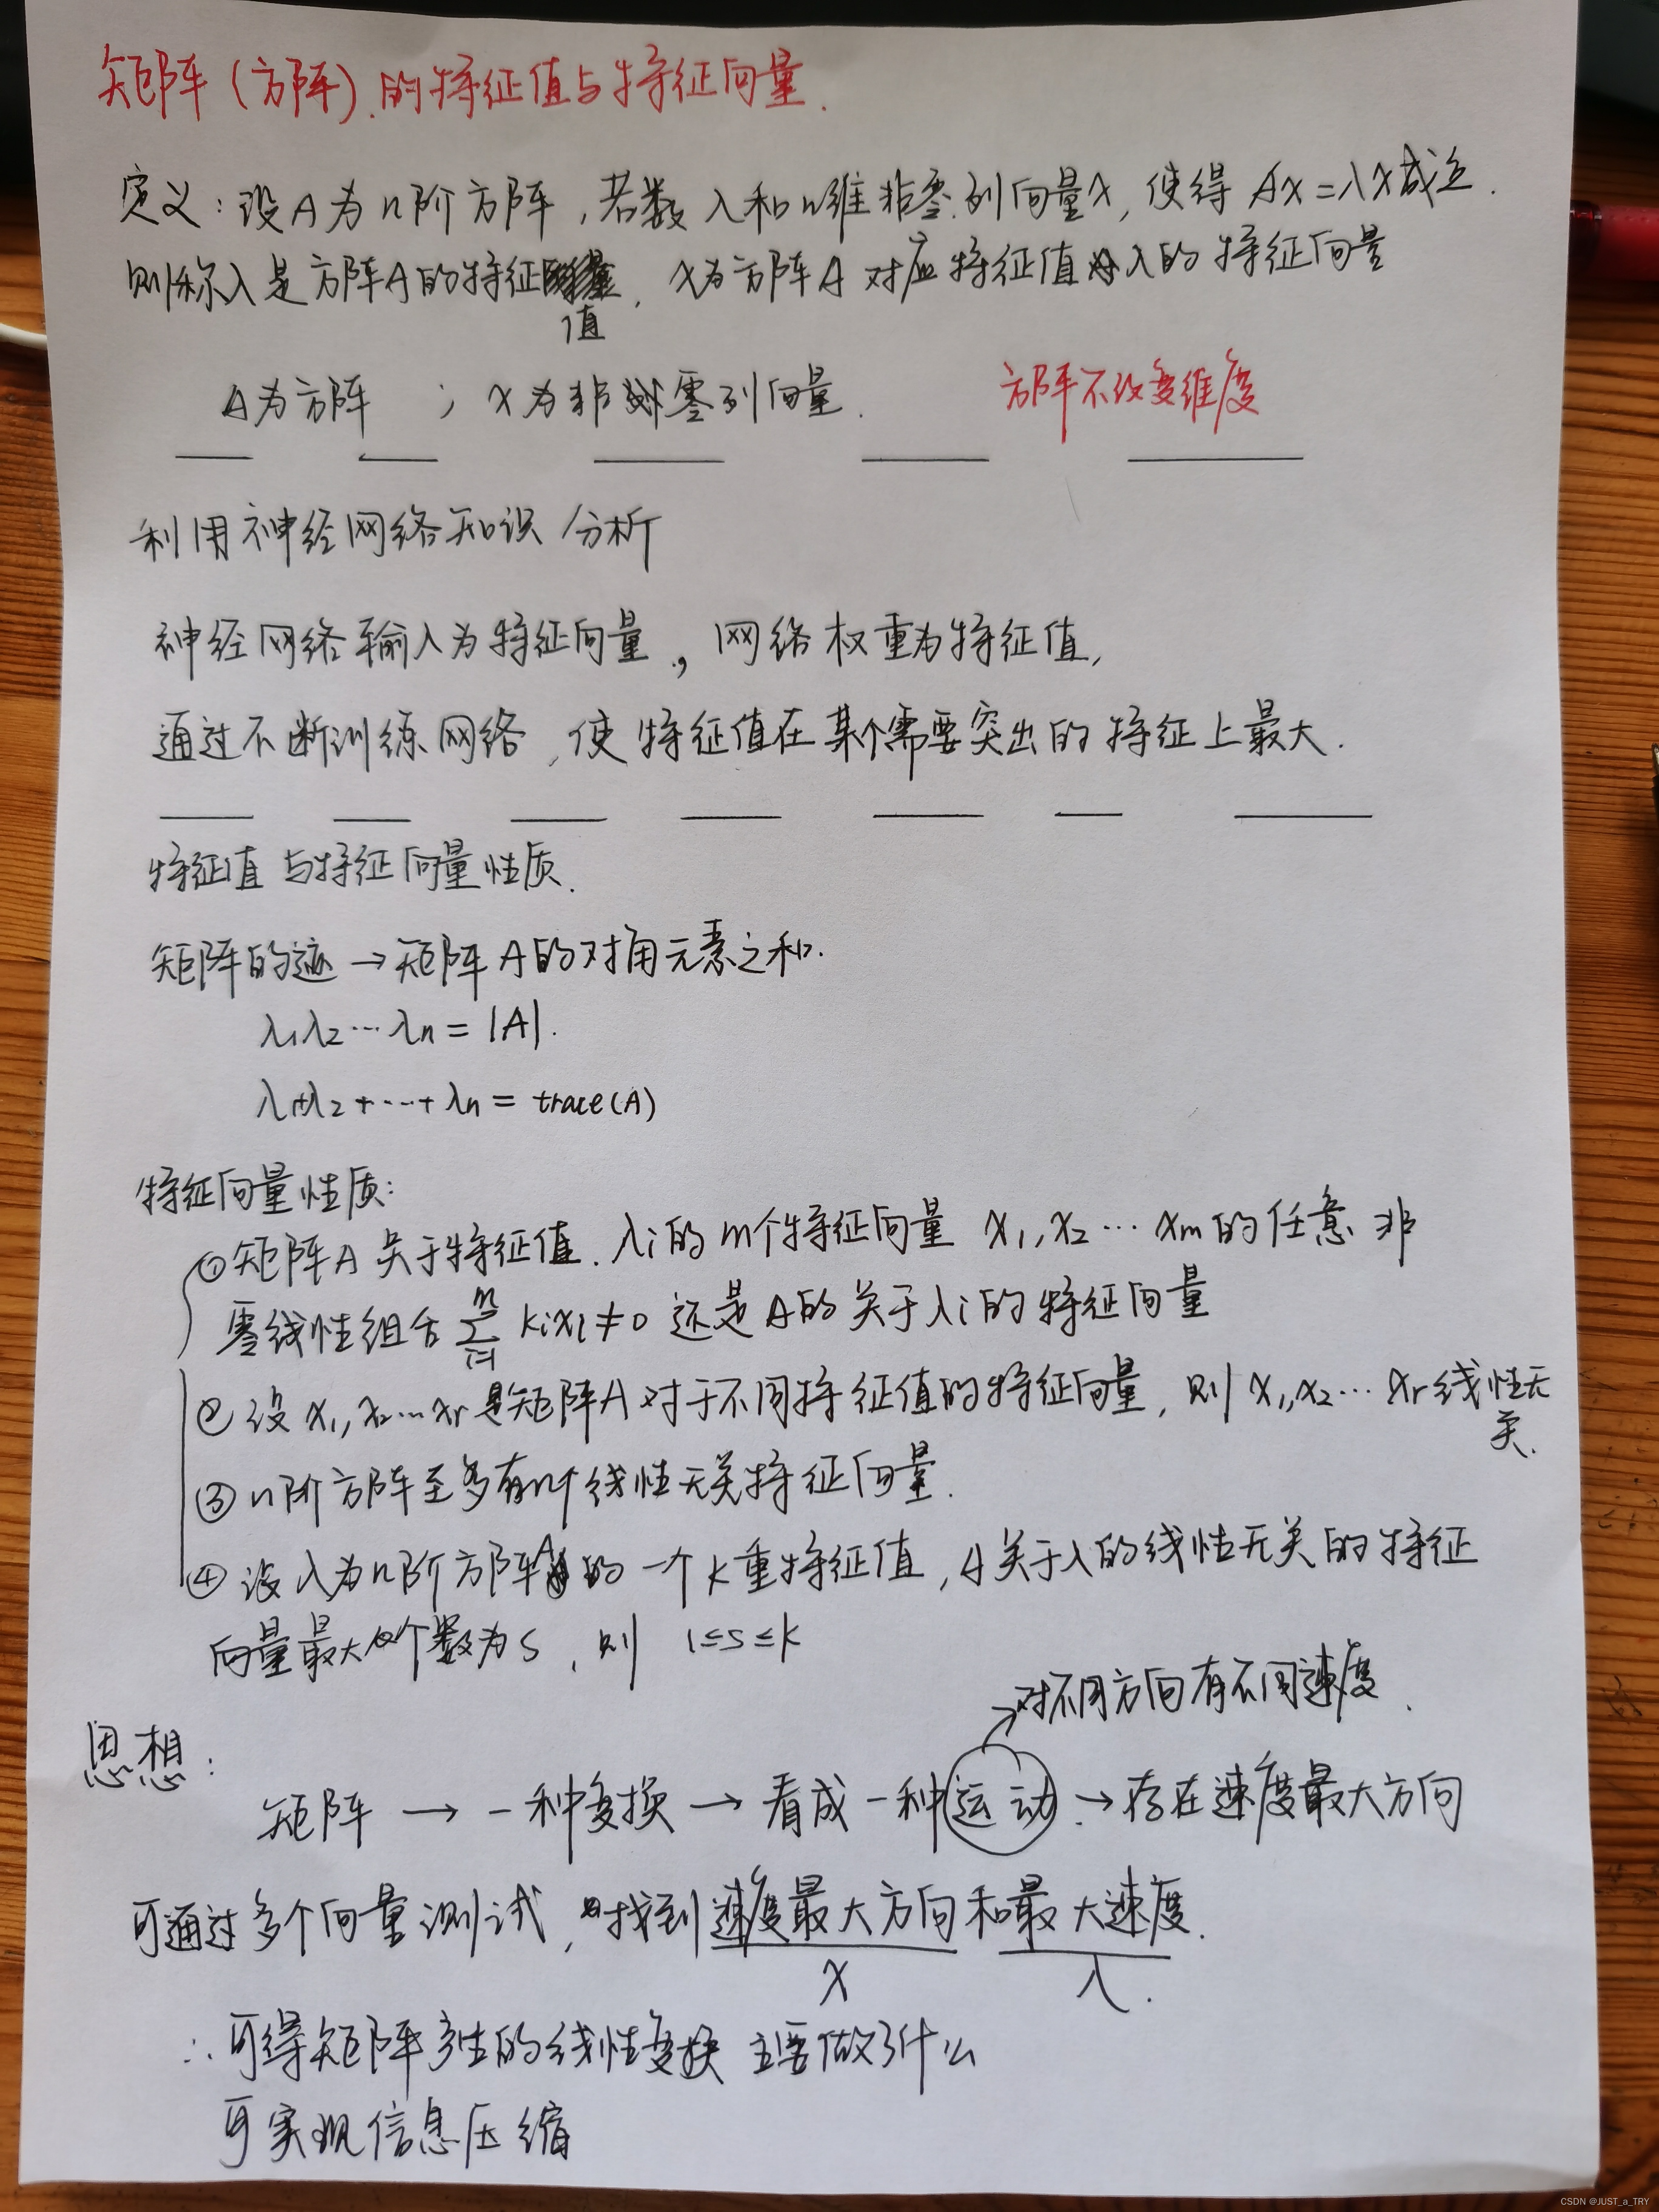 矩阵（方阵）的特征值与特征向量.
定义：设A为n阶方阵，若数λ和n维非零列向量x，使得Ax=λx成立.
则称λ是方阵A的特征值，x为方阵A对应特征值λ的特征向量
A为方阵；x为非零列向量. 方阵不改变维度
利用神经网络知识分析
神经网络输入为特征向量，网络权重为特征值，
通过不断训练网络，使特征值在某个需要突出的特征上最大.
特征值与特征向量性质.
矩阵的迹→矩阵A的对角元素之和.
λ1λ2⋯λn=|A|.
λ1+λ2+⋯+λn=trace(A)
特征向量性质：
①矩阵A关于特征值λi的m个特征向量x1,x2⋯xm的任意非
零线性组合∑(i=1..m) kixi≠0还是A的关于λi的特征向量
②设x1,x2⋯xr是矩阵A对于不同特征值的特征向量，则x1,x2⋯xr线性无
关.
③n阶方阵至多有n个线性无关特征向量.
④设λ为n阶方阵A的一个k重特征值，A关于λ的线性无关的特征
向量最大个数为s，则 1≤s≤k
→对不同方向有不同速度.
思想：
矩阵→一种变换→看成一种运动.→存在速度最大方向
可通过多个向量测试，找到速度最大方向和最大速度.
x λ.
∴可得矩阵产生的线性变换主要做了什么
可实现信息压缩
CSDN @JUST_a_TRY